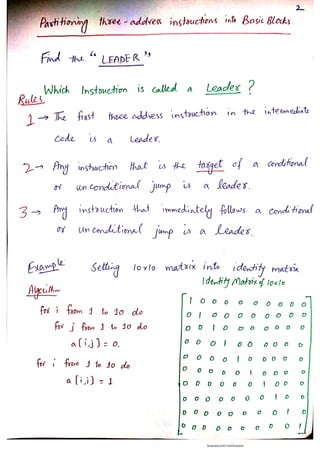 2
Partitioning three-address instructions into Basic Blocks
Find the "LEADER"
Which Instruction is called a Leader?
Rules
1 → The first three address instruction in the intermediate
code is a Leader.
2 → Any instruction that is the target of a conditional
or unconditional jump is a leader.
3 → Any instruction that immediately follows a conditional
or unconditional jump is a Leader.
Example Setting 10x10 matrix into identity matrix
Algorithm
Identity Matrix of 10x10
for i from 1 to 10 do
for j from 1 to 10 do
a[i,j] = 0.
for i from 1 to 10 do
a[i,i] = 1
1 0 0 0 0 0 0 0 0 0
0 1 0 0 0 0 0 0 0 0
0 0 1 0 0 0 0 0 0 0
0 0 0 1 0 0 0 0 0 0
0 0 0 0 1 0 0 0 0 0
0 0 0 0 0 1 0 0 0 0
0 0 0 0 0 0 1 0 0 0
0 0 0 0 0 0 0 1 0 0
0 0 0 0 0 0 0 0 1 0
0 0 0 0 0 0 0 0 0 1
Scanned with CamScanner